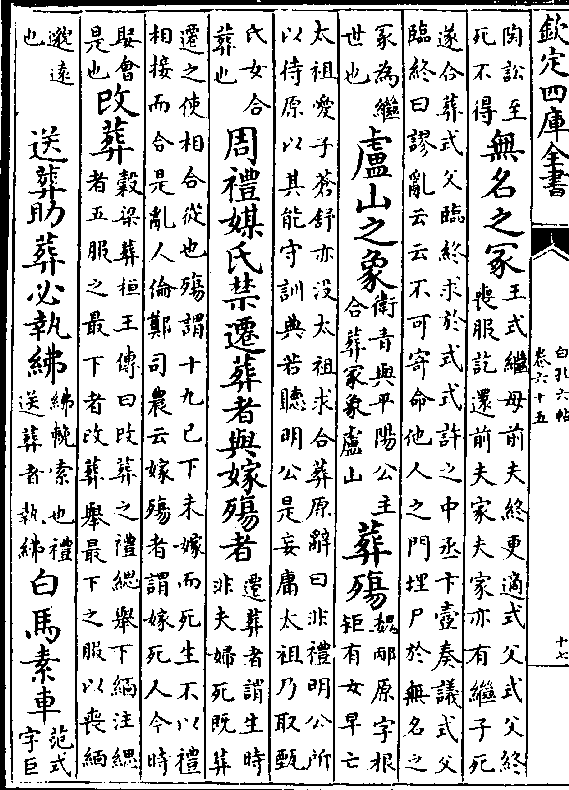 欽定四庫全書
白孔六帖
卷六十五
十七
閔訟至
死不得
無名之冢
王式繼母前夫終更適式父式父終
喪服訖還前夫家夫家亦有繼子死
遂合葬式父臨終求於式式許之中丞卞壼奏議式父
臨終曰謬亂云云不可寄命他人之門埋尸於無名之
冢為繼
世也
盧山之象
衛青與平陽公主
合葬冢象盧山
葬殤
魏邴原字根
矩有女早亡
太祖愛子蒼舒亦没太祖求合葬原辭曰非禮明公所
以侍原以其能守訓典若聽明公是妄庸太祖乃取甄
氏女合
葬也
周禮媒氏禁遷葬者與嫁殤者
遷葬者謂生時
非夫婦死既葬
遷之使相合從也殤謂十九已下未嫁而死生不以禮
相接而合是亂人倫鄭司農云嫁殤者謂嫁死人今時
娶會
是也
改葬
穀梁葬桓王傳曰改葬之禮緦舉下緬注緦
者五服之最下者改葬舉最下之服以喪緬
邈遠
也
送葬助葬必執紼
紼輓索也禮
送葬者執紼
白馬素車
范式
字巨